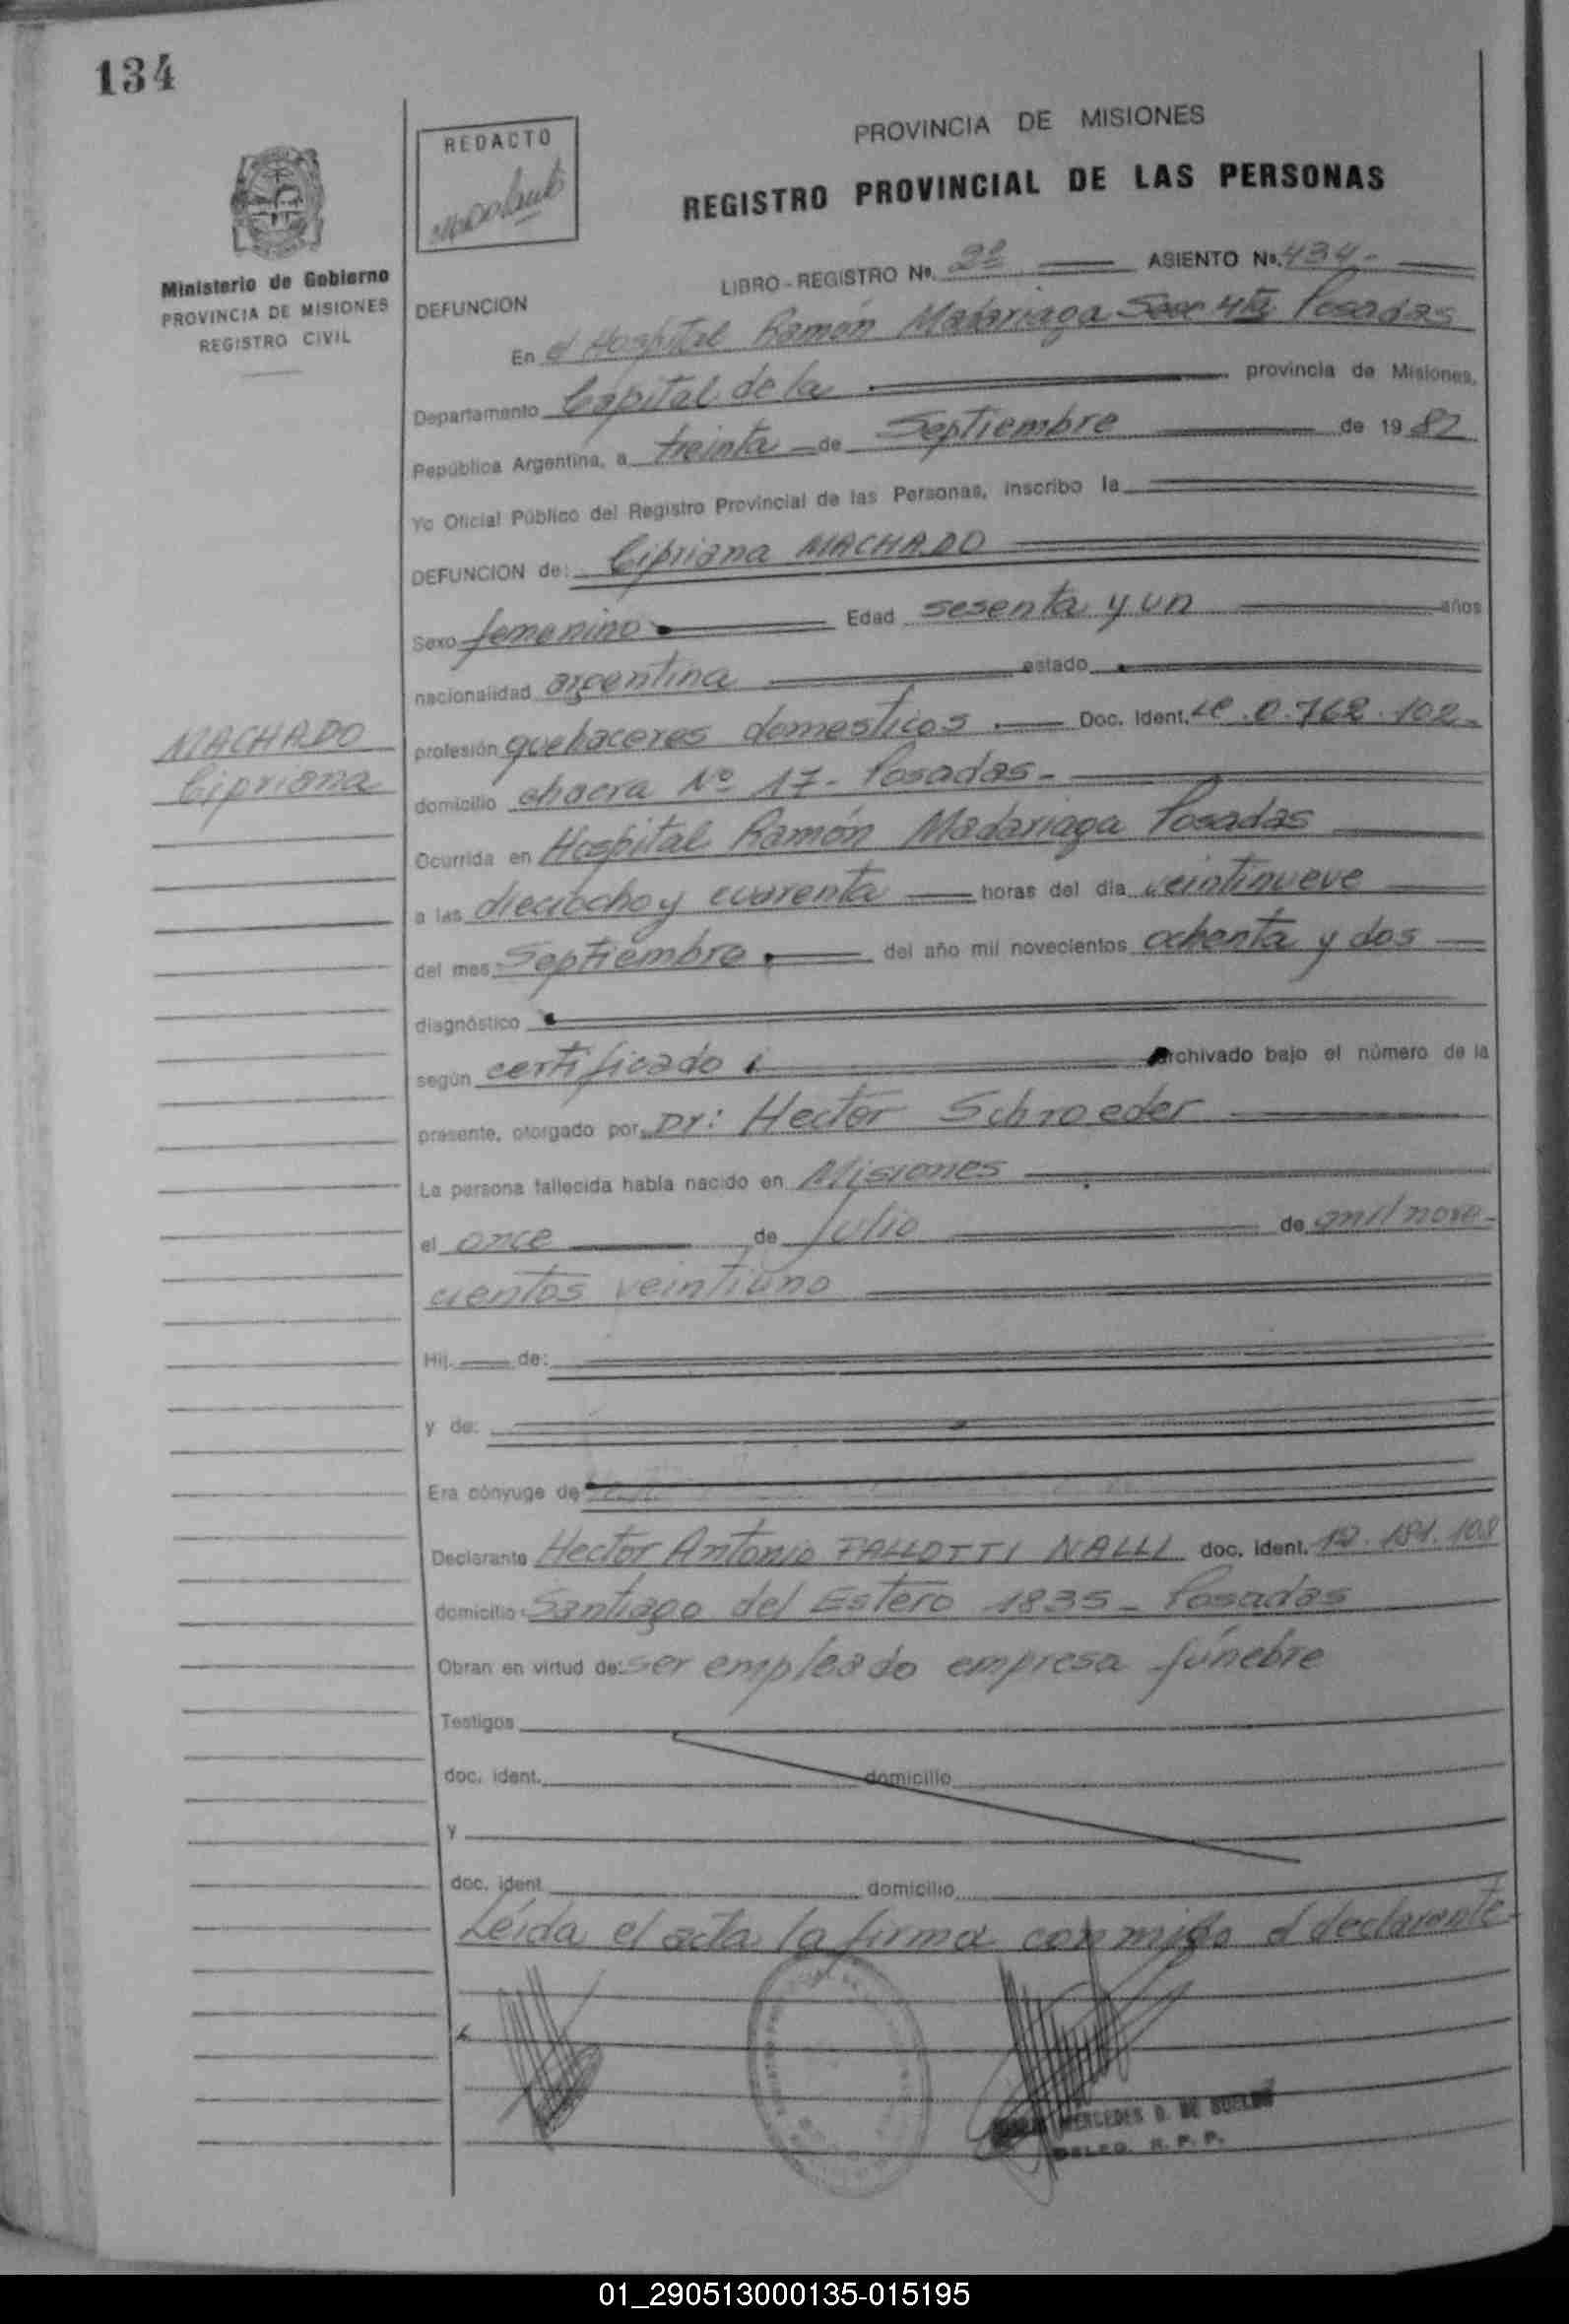 134
REDACTO
PROVINCIA DE MISIONES
REGISTRO PROVINCIAL DE LAS PERSONAS
Ministerio de Gobierno
PROVINCIA DE MISIONES
REGISTRO CIVIL
LIBRO-REGISTRO Nº. ASIENTO Nº. 434-
DEFUNCION
En el Hospital Ramón Madariaga Secc 4ta Posadas
Departamento Capital de la provincia de Misiones,
República Argentina, a treinta de Septiembre de 1982
Yo Oficial Público del Registro Provincial de las Personas, inscribo la
DEFUNCION de: Cipriana MACHADO
Sexo femenino Edad sesenta y un años
nacionalidad argentina estado
MACHADO
Cipriana
profesión quehaceres domesticos Doc. Ident. LC. 0.762.102-
domicilio chacra Nº 17- Posadas-
Ocurrida en Hospital Ramón Madariaga Posadas
a las dieciocho y cuarenta horas del día veintinueve
del mes Septiembre del año mil novecientos ochenta y dos
diagnóstico
según certificado archivado bajo el número de la
presente, otorgado por Dr: Hector Schroeder
La persona fallecida había nacido en Misiones
el once de Julio de mil nove-
cientos veintiuno
Hij de:
y de:
Era cónyuge de
Declarante Hector Antonio FALLOTTI NALLI doc. ident. 12.181.108
domicilio Santiago del Estero 1835- Posadas
Obran en virtud de: ser empleado empresa fúnebre
Testigos
doc. ident. domicilio
y
doc. ident. domicilio
Leída el acta la firma conmigo el declarante-
MERCEDES D. DE
DELEG. R. P. P.
01_290513000135-015195